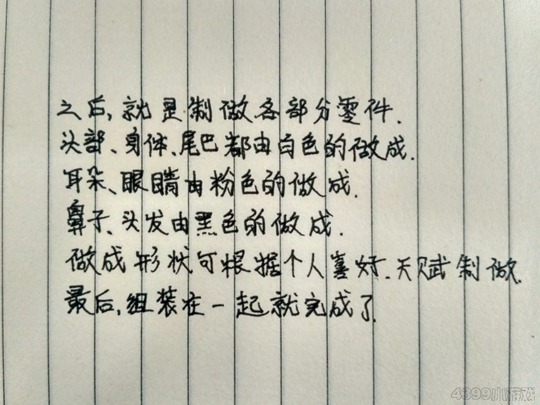 之后,就是制做各部分零件.
头部、身体、尾巴都由白色的做成.
耳朵、眼睛由粉色的做成.
鼻子、头发由黑色的做成.
做成形状可根据个人喜好、天赋制做.
最后,组装在一起就完成了.
4399小游戏